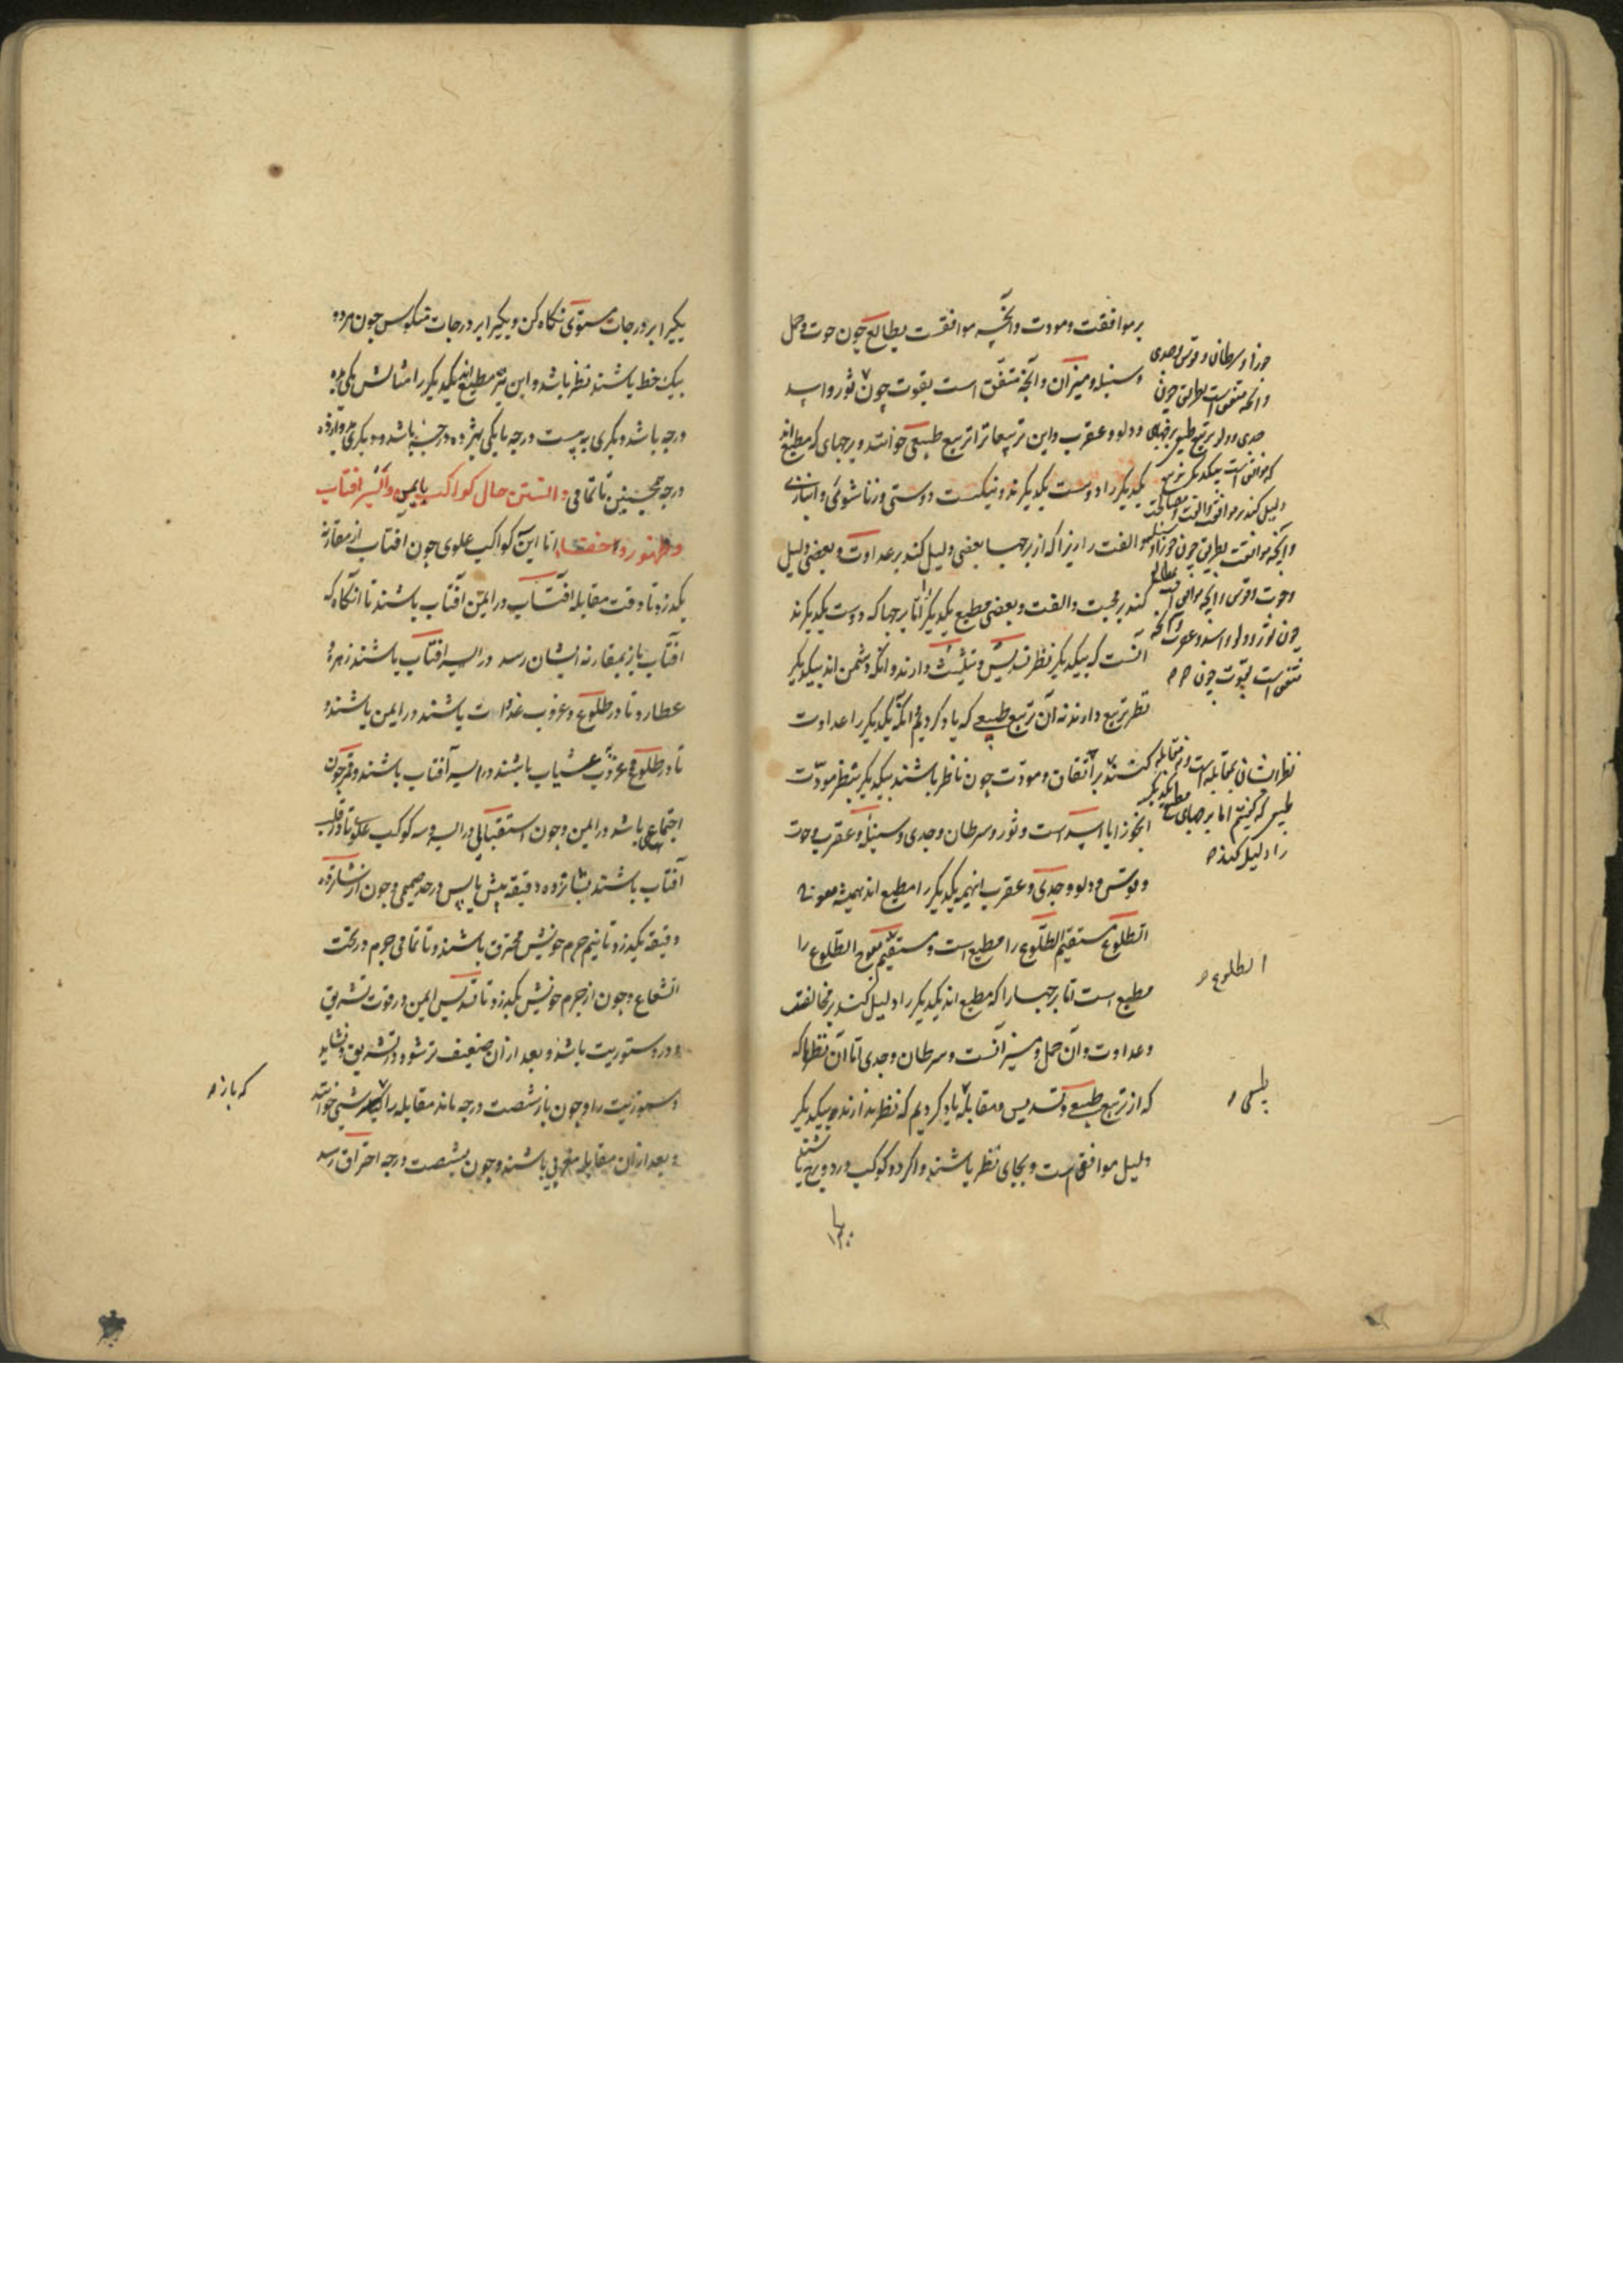 بر موافقت و مودت و آنچه موافقست بطالع چون حوت و حمل
و سنبله و میزان و آنچه متفق است بقوت چون ثور و اسد
و دلو و عقرب و این تربیعاترا تربیع طبیعی خوانند و برجهای که مطیع‌اند
یکدیگر را دوست یکدیگرند و نیکست دوستی و زناشوئی و انبازی
و الفت را زیرا که از برجها بعضی دلیل کند بر عداوت و بعضی دلیل
کند بر محبت و الفت و بعضی مطیع یکدیگر را اما برجها که دوست یکدیگرند
آنست که بیکدیگر نظر تسدیس و تثلیث دارند و آنکه دشمن‌اند بیکدیگر
نظر تربیع دارند نه آن تربیع طبیعی که یاد کردیم آنکه یکدیگر را عداوت
کنند بر اتفاق و مودت چون ناظر باشند بیکدیگر بنظر مودّت
چون جوزا با اسد است و ثور و سرطان و جدی و سنبله و عقرب و حوت
و قوس و دلو و جدی و عقرب اینهمه یکدیگر را مطیع‌اند همیشه معوجه
الطلوع مستقیم الطلوع را مطیع است و مستقیم معوج الطلوع را
مطیع است اما برجها را که مطیع‌اند یکدیگر را دلیل کند بر مخالفت
و عداوت و آن حمل و میزانست و سرطان و جدی اما آن نظرها که
که از تربیع طبیعی و تسدیس و مقابله یاد کردیم که نظر ندارند بیکدیگر
دلیل موافق است و بجای نظر باشند و اگر دو کوکب در دو برج باشند
جوزا و سرطان و قوس و جدی
و آنچه متفق است بطریق چون
جدی و دلو بر تربیع طبیعی برجهای
که موافق است بیکدیگر
دلیل کند بر موافقت و الفت و مصالحت
و آنچه موافقت بطریق چون جوزا و سنبله
و حوت و قوس و آنچه موافق است بمطالع
چون ثور و دلو و اسد و عقرب و آنچه
متفق است بقوت چون
نظر ایشان بمقابله است و نه مقابله
طبیعی که گفتیم اما برجهای مطیع یکدیگر
را دلیل کند
الطلوع
طبیعی
یکیرا بر درجات مستوی نگاه کن و یکیرا بر درجات منکوس چون هر دو
بیک خط باشند نظر باشد و این نیز مطیع‌اند یکدیگر را مثالش یکی بده
درجه باشد و دیگری به بیست درجه یا یکی بهژده درجه باشد و دیگری بدوازده
درجه همچنین تا تمامی دانستن حال کواکب بایمن و ایسر آفتاب
و ظهور و اختفا اما این کواکب علوی چون آفتاب از مقارنه
بگذرد تا وقت مقابله آفتاب در ایمن آفتاب باشند تا آنگاه که
آفتاب باز بمقارنه ایشان رسد در ایسر آفتاب باشند زهره و
عطارد تا در طلوع و غروب غدوات باشند در ایمن باشند و
تا در طلوع و غروب عشیات باشند در ایسر آفتاب باشند و قمر چون
اجتماعی باشد در ایمن و چون استقبالی در ایسر و سه کوکب علوی تا در قلب
آفتاب باشند بشانزده دقیقه پیش یا پس در حد صمیمی و چون از شانزده
دقیقه بگذرد تا نیم جرم خویش محترق باشند و تا تمامی جرم در تحت
الشعاع و چون از جرم خویش بگذرد تا تسدیس ایمن در قوت تشریق
و در دستوریت باشد و بعد از آن ضعیف تر شود تشریق و نشاید
دستوریت را و چون باز شصت درجه ماند مقابله را گویند
و بعد از آن مقابله مغربی باشند و چون بشصت درجه احتراق رسد
که باز